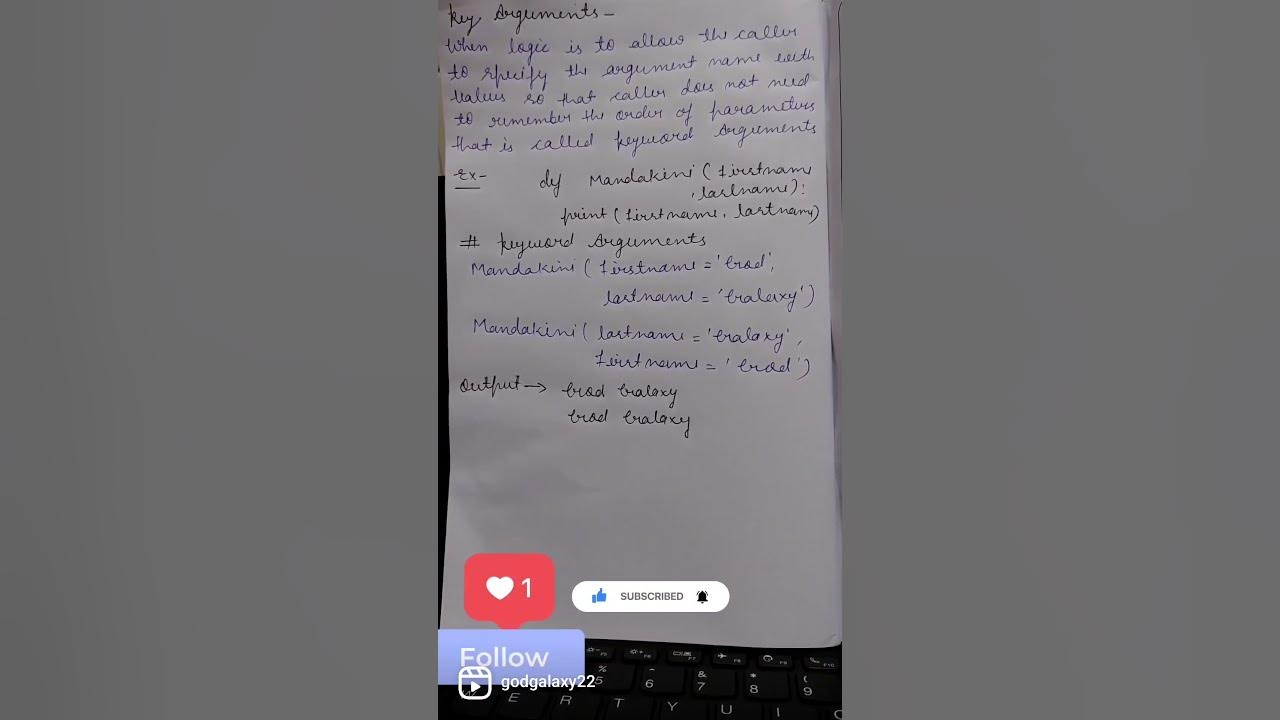 Key Arguments -
When logic is to allow the caller
to specify the argument name with
values so that caller does not need
to remember the order of parameters
that is called keyword Arguments
Ex-
def Mandakini(firstname
,lastname):
print(firstname, lastname)
# keyword Arguments
Mandakini(firstname='God',
lastname='Galaxy')
Mandakini(lastname='Galaxy',
firstname='God')
Output → God Galaxy
God Galaxy
1
SUBSCRIBED
Follow
godgalaxy22
F5
F6
F7
F8
F9
F10
%
5
^
6
&
7
*
8
(
9
E
R
T
Y
U
I